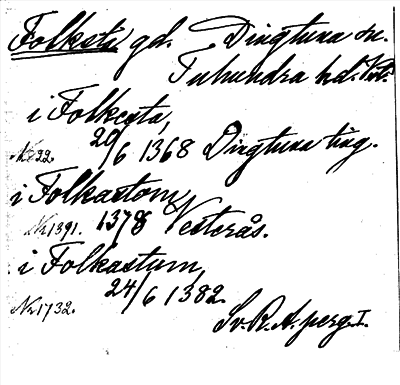 Folksta gd. Dingtuna sn.
Tuhundra hd. Vstl.
i Folkesta,
20/6 1368 Dingtuna ting.
Nr 922.
i Folkastom,
Nr 1391. 1378 Vesterås.
i Folkastum,
24/6 1382.
Nr 1732.
Sv. R. A. perg. I.